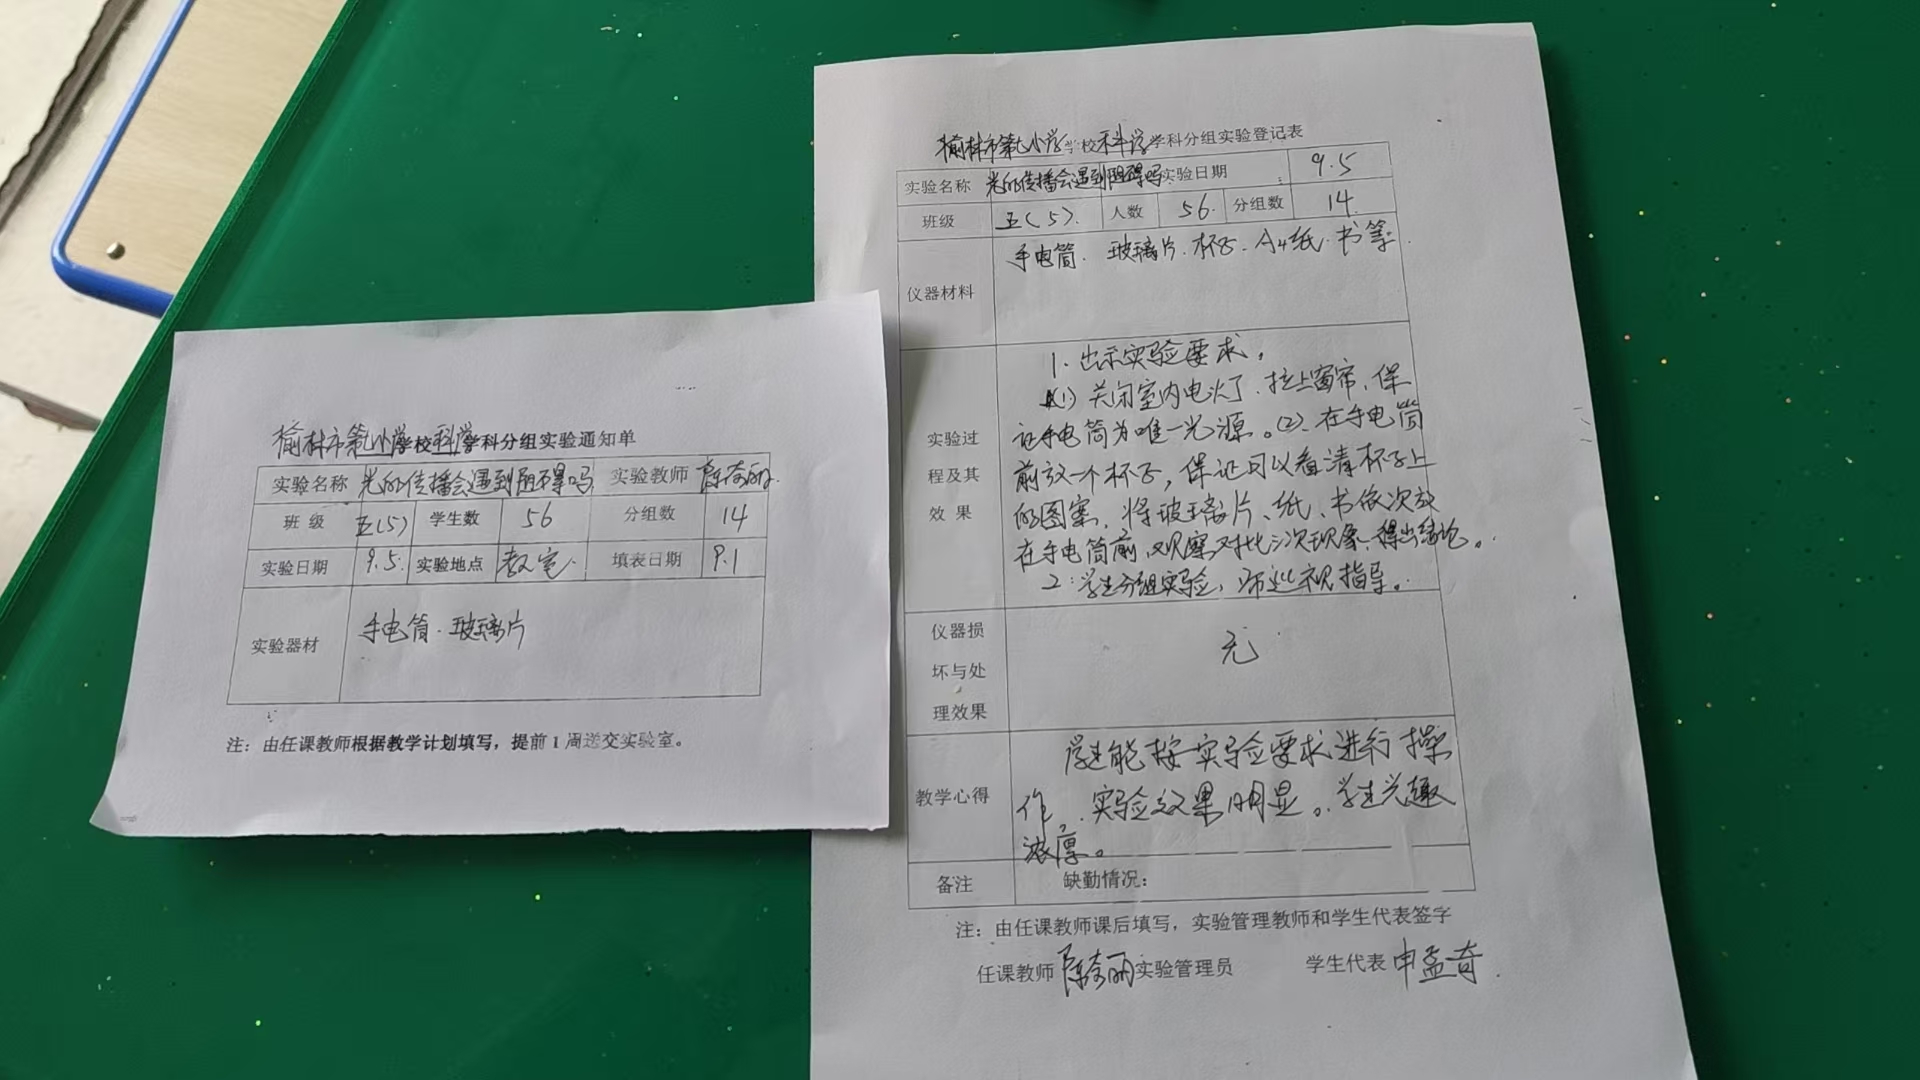 榆林市第七小学学校科学学科分组实验通知单
实验名称 光的传播会遇到阻碍吗 实验教师 陈奇丽
班 级 五(5) 学生数 56 分组数 14
实验日期 9.5. 实验地点 教室. 填表日期 9.1
实验器材 手电筒. 玻璃片
注：由任课教师根据教学计划填写，提前1周送交实验室。
榆林市第七小学学校科学学科分组实验登记表
实验名称 光的传播会遇到阻碍吗 实验日期 9.5
班级 五(5). 人数 56. 分组数 14.
仪器材料 手电筒. 玻璃片. 杯子. A4纸. 书等.
实验过
程及其
效 果
1. 出示实验要求。
(1) 关闭室内电灯、拉上窗帘、保
证手电筒为唯一光源。(2). 在手电筒
前放一个杯子，保证可以看清杯子上
的图案，将玻璃片、纸、书依次放
在手电筒前，观察对比三次现象、得出结论。
2. 学生分组实验，师巡视指导。
仪器损
坏与处
理效果
无
教学心得
学生能按实验要求进行操
作，实验效果明显。学生兴趣
浓厚。
备注 缺勤情况：
注：由任课教师课后填写，实验管理教师和学生代表签字
任课教师 陈奇丽 实验管理员 学生代表 申孟奇.